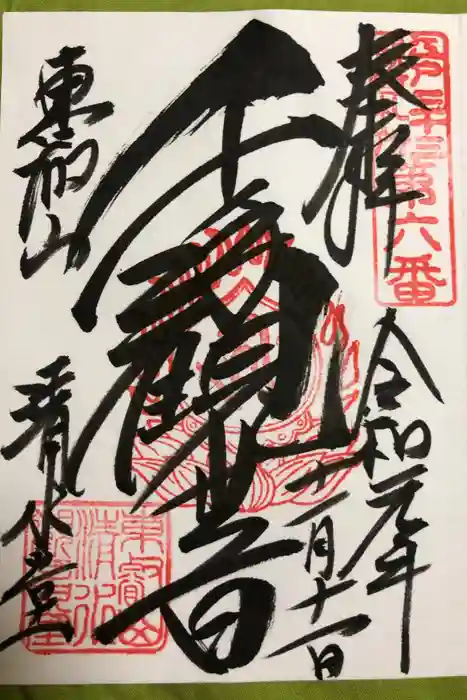 奉拝
第六番
令和元年
十一月十一日
千手觀世音
東叡山
清水堂
東叡山
清水
觀音堂